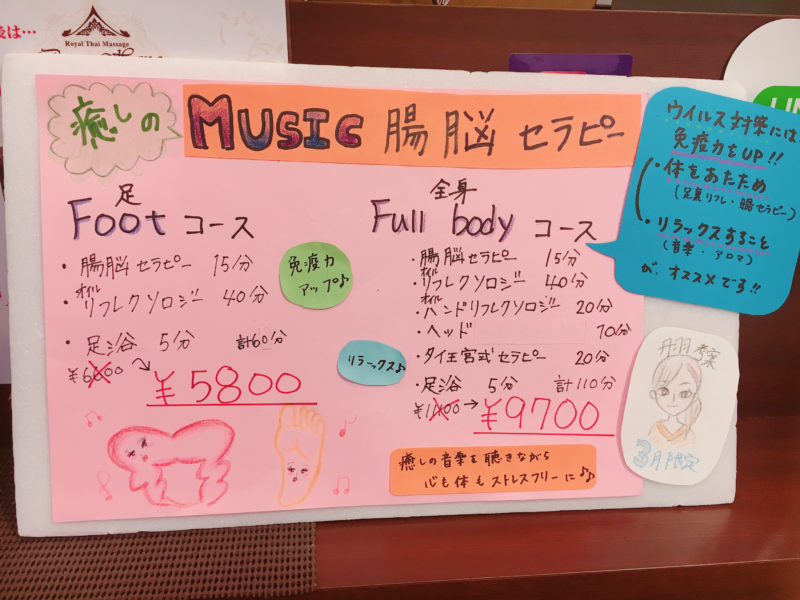 後は…
Royal Thai Massage
癒しの
MUSIC 腸脳 セラピー
足
Foot コース
・腸脳セラピー 15分
オイル
・リフレクソロジー 40分
・足浴 5分 計60分
¥5800
免疫力
アップ♪
リラックス♪
全身
Full body コース
・腸脳セラピー 15分
オイル
・リフレクソロジー 40分
オイル
・ハンドリフレクソロジー 20分
・ヘッド 10分
・タイ王宮式セラピー 20分
・足浴 5分 計110分
¥9700
癒しの音楽を聴きながら
心も体もストレスフリーに♪♪
ウイルス対策には、
免疫力をUP!!
・体をあたため
(足裏リフレ・腸セラピー)
・リラックスすること
(音楽・アロマ)
が、オススメです!!
丹羽考案
3月限定